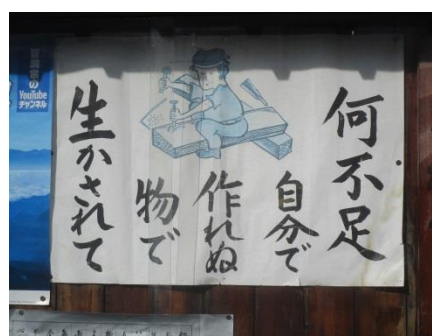 何不足
自分で
作れぬ
物で
生かされて
YouTube
チャンネル